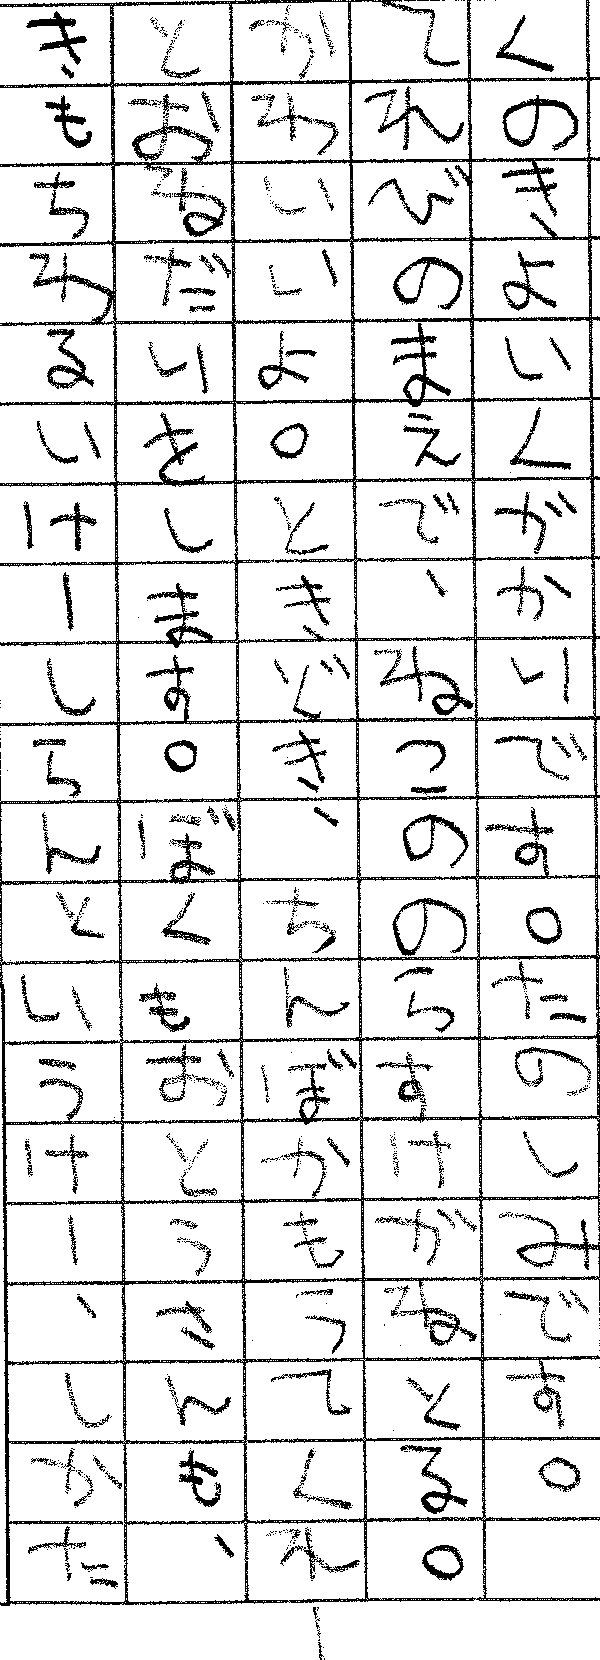 くのきよいくがかいです。たのしみです。
てれびのまえで、ねこののらすけがねとる。
かわいいよ。ときどき、ちんぼかもうてくれ
とおねだいをします。ぼくもおとうさんも、
きもちわるいけーしらんというけー、しかた